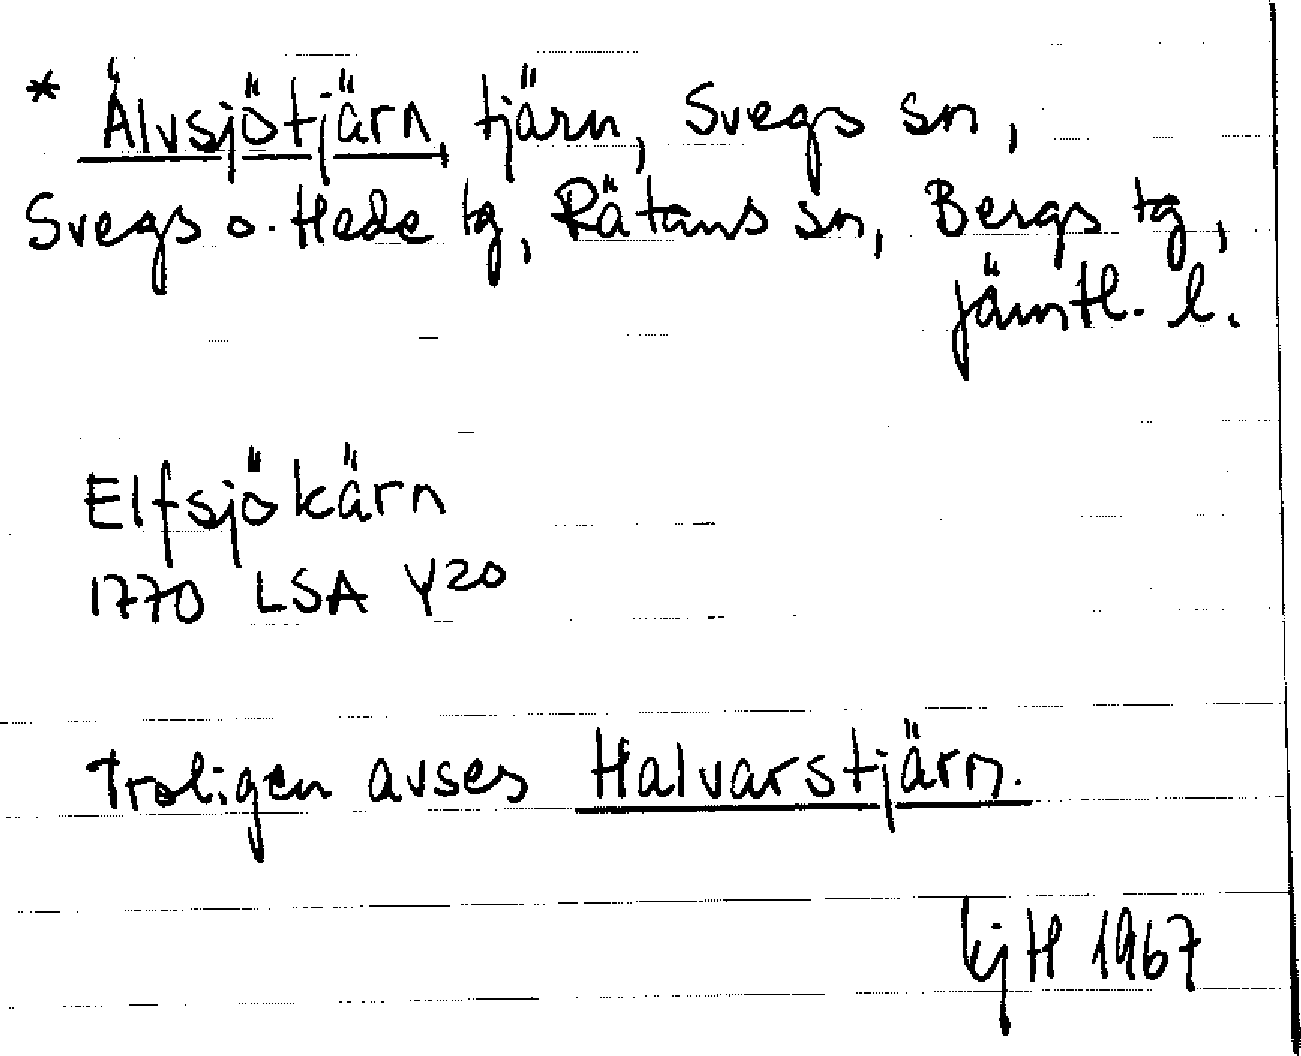 * Älvsjötjärn, tjärn, Svegs sn,
Svegs o. Hede tg, Rätans sn, Bergs tg,
Jämtl. l.
Elfsjökärn
1770 LSA Y20
Troligen avses Halvarstjärn.
KjH 1967